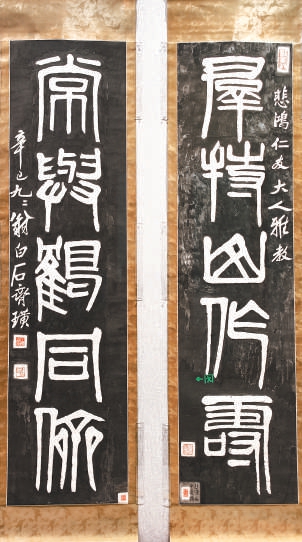 悲鴻仁友大人雅教
羣持山作壽
常與鶴同儕
辛巳九二翁白石齊璜